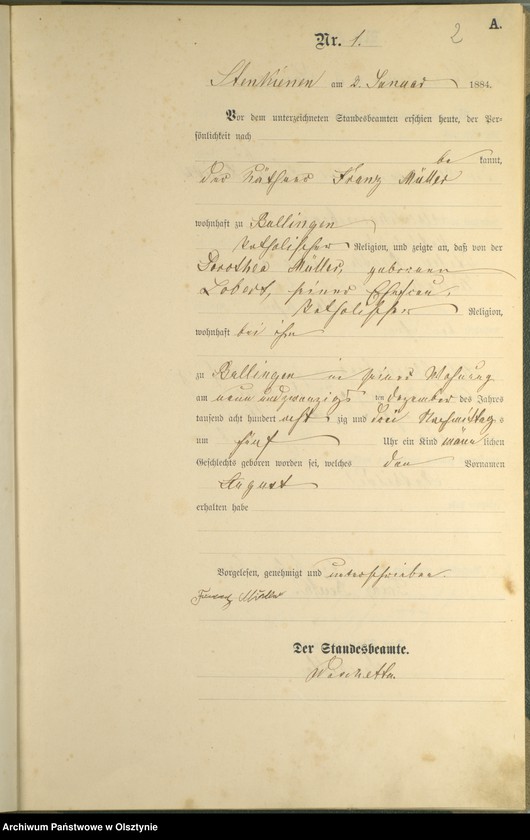 A.
2
Nr. 1.
Stenkienen am 2. Januar 1884.
Vor dem unterzeichneten Standesbeamten erschien heute, der Per-
sönlichkeit nach
be kannt,
der Käthner Franz Müller
wohnhaft zu Rallingen
katholischer Religion, und zeigte an, daß von der
Dorothea Müller, geborenen
Lobert, seiner Ehefrau,
katholischer Religion,
wohnhaft bei ihm
zu Rallingen in seiner Wohnung
am neun und zwanzigst en Dezember des Jahres
tausend acht hundert acht zig und drei Nachmittag s
um fünf Uhr ein Kind männ lichen
Geschlechts geboren worden sei, welches den Vornamen
August
erhalten habe
Vorgelesen, genehmigt und unterschrieben.
Franz Müller
Der Standesbeamte.
Archiwum Państwowe w Olsztynie